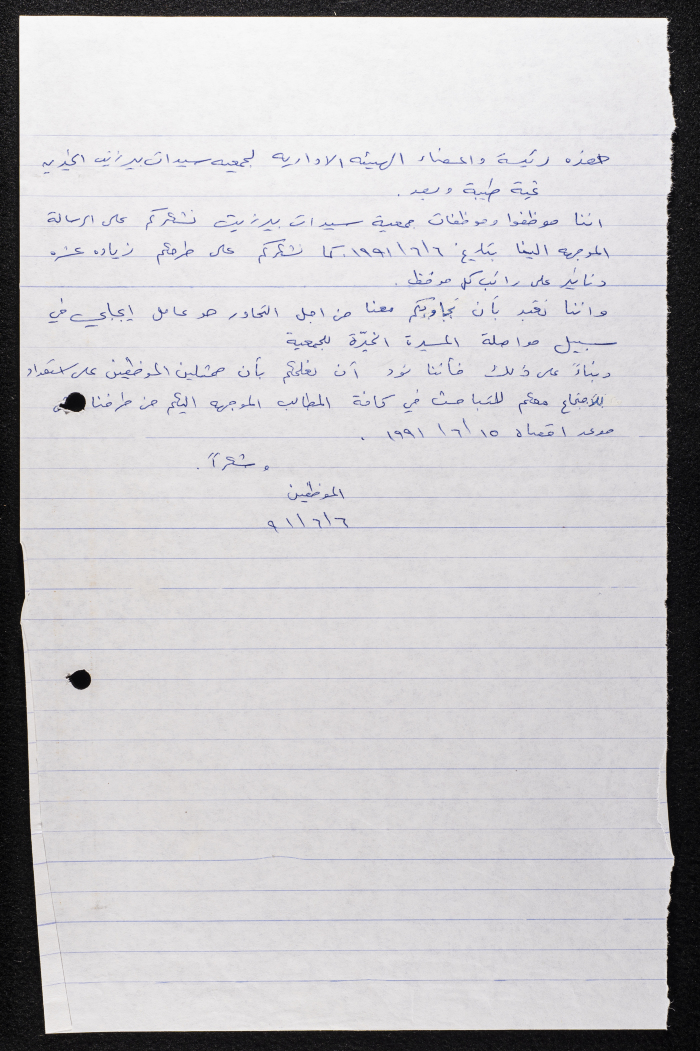 حضره رئيسة واعضاء الهيئه الاداريه لجمعيه سيدات بيرزيت الخيريه
تحية طيبة وبعد .
اننا موظفوا وموظفات جمعية سيدات بيرزيت نشكركم على الرسالة
الموجهه الينا بتاريخ ١٩٩١/٦/٦ كما نشكركم على طرحكم زياده عشره
دنانير على راتب كل موظف .
واننا نعتبر بأن تجاوبكم معنا من اجل التحاور هو عامل إيجابي في
سبيل مواصلة المسيرة الخيّرة للجمعية
وبناءً على ذلك فأننا نود أن نعلمكم بأن ممثلين الموظفين على استعداد
للاجتماع معكم للتباحث في كافة المطالب الموجهه اليكم من طرفنا
موعد اقصاه ١٩٩١/٦/١٥ .
وشكراً .
الموظفين
٩١/٦/٦